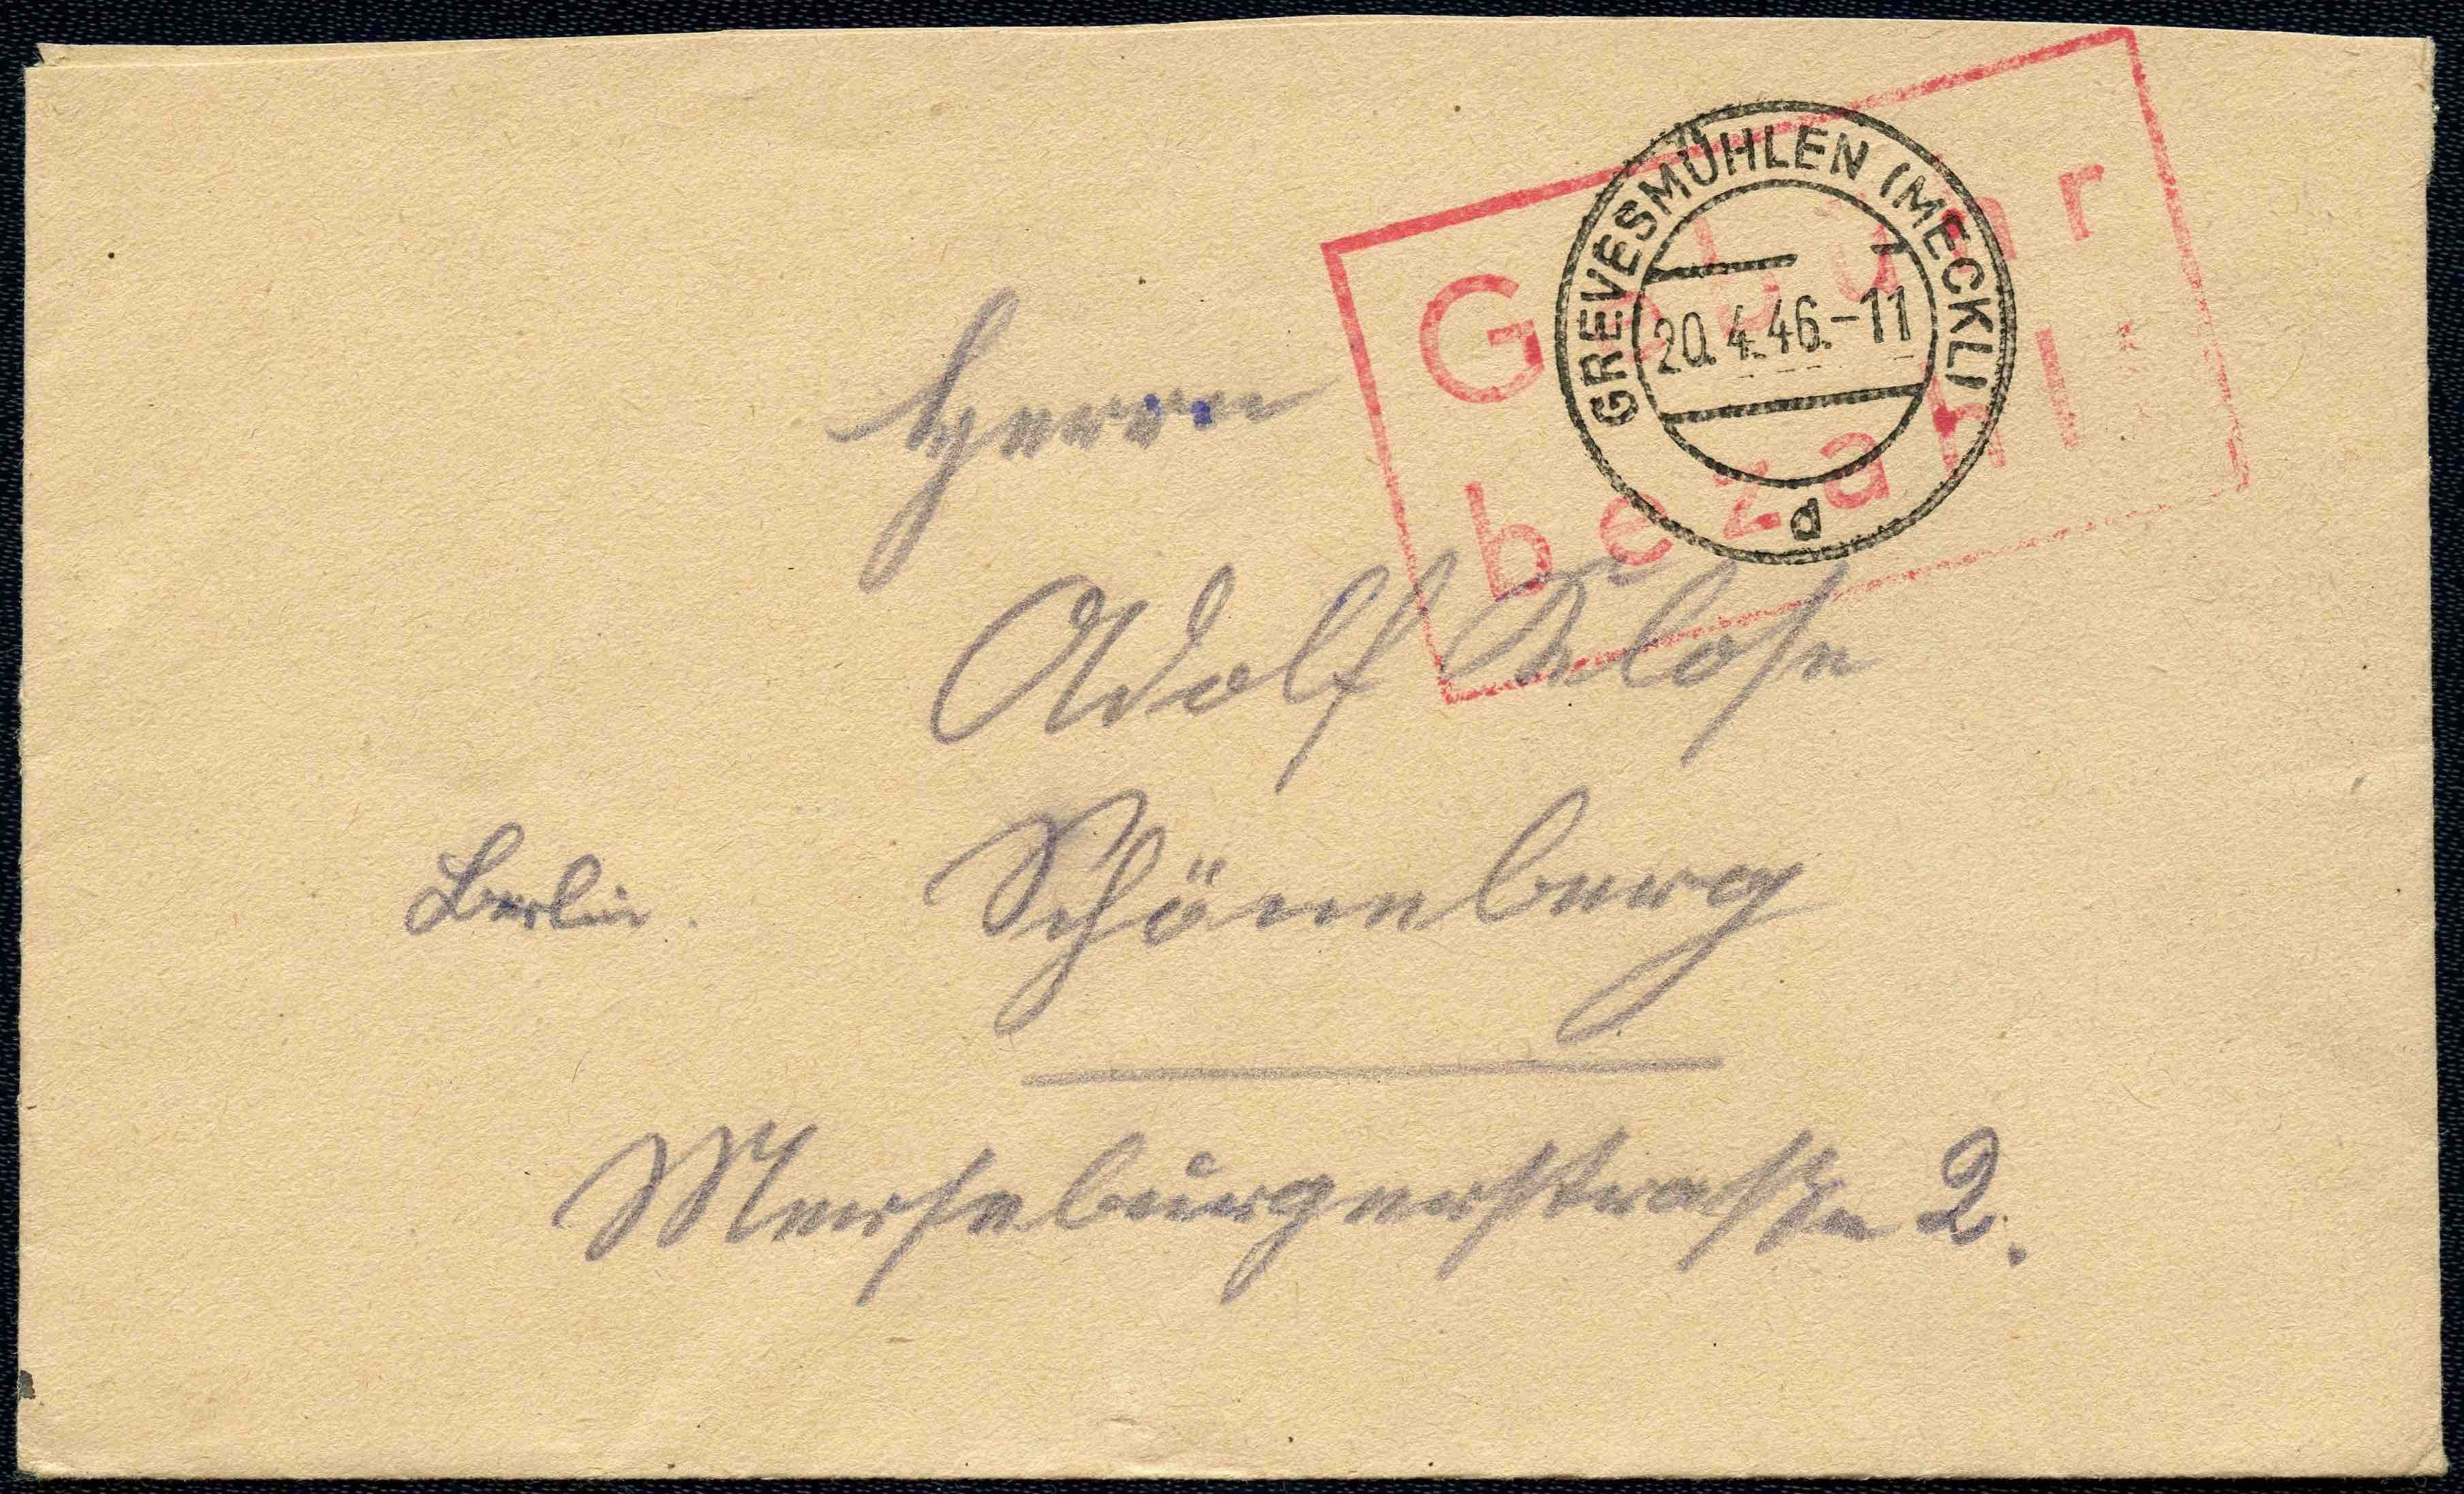 Gebühr
bezahlt
GREVESMÜHLEN (MECKL)
20.4.46.-11
a
Herrn
Adolf Klose
Berlin. Schöneberg
Merseburgerstraße 2.